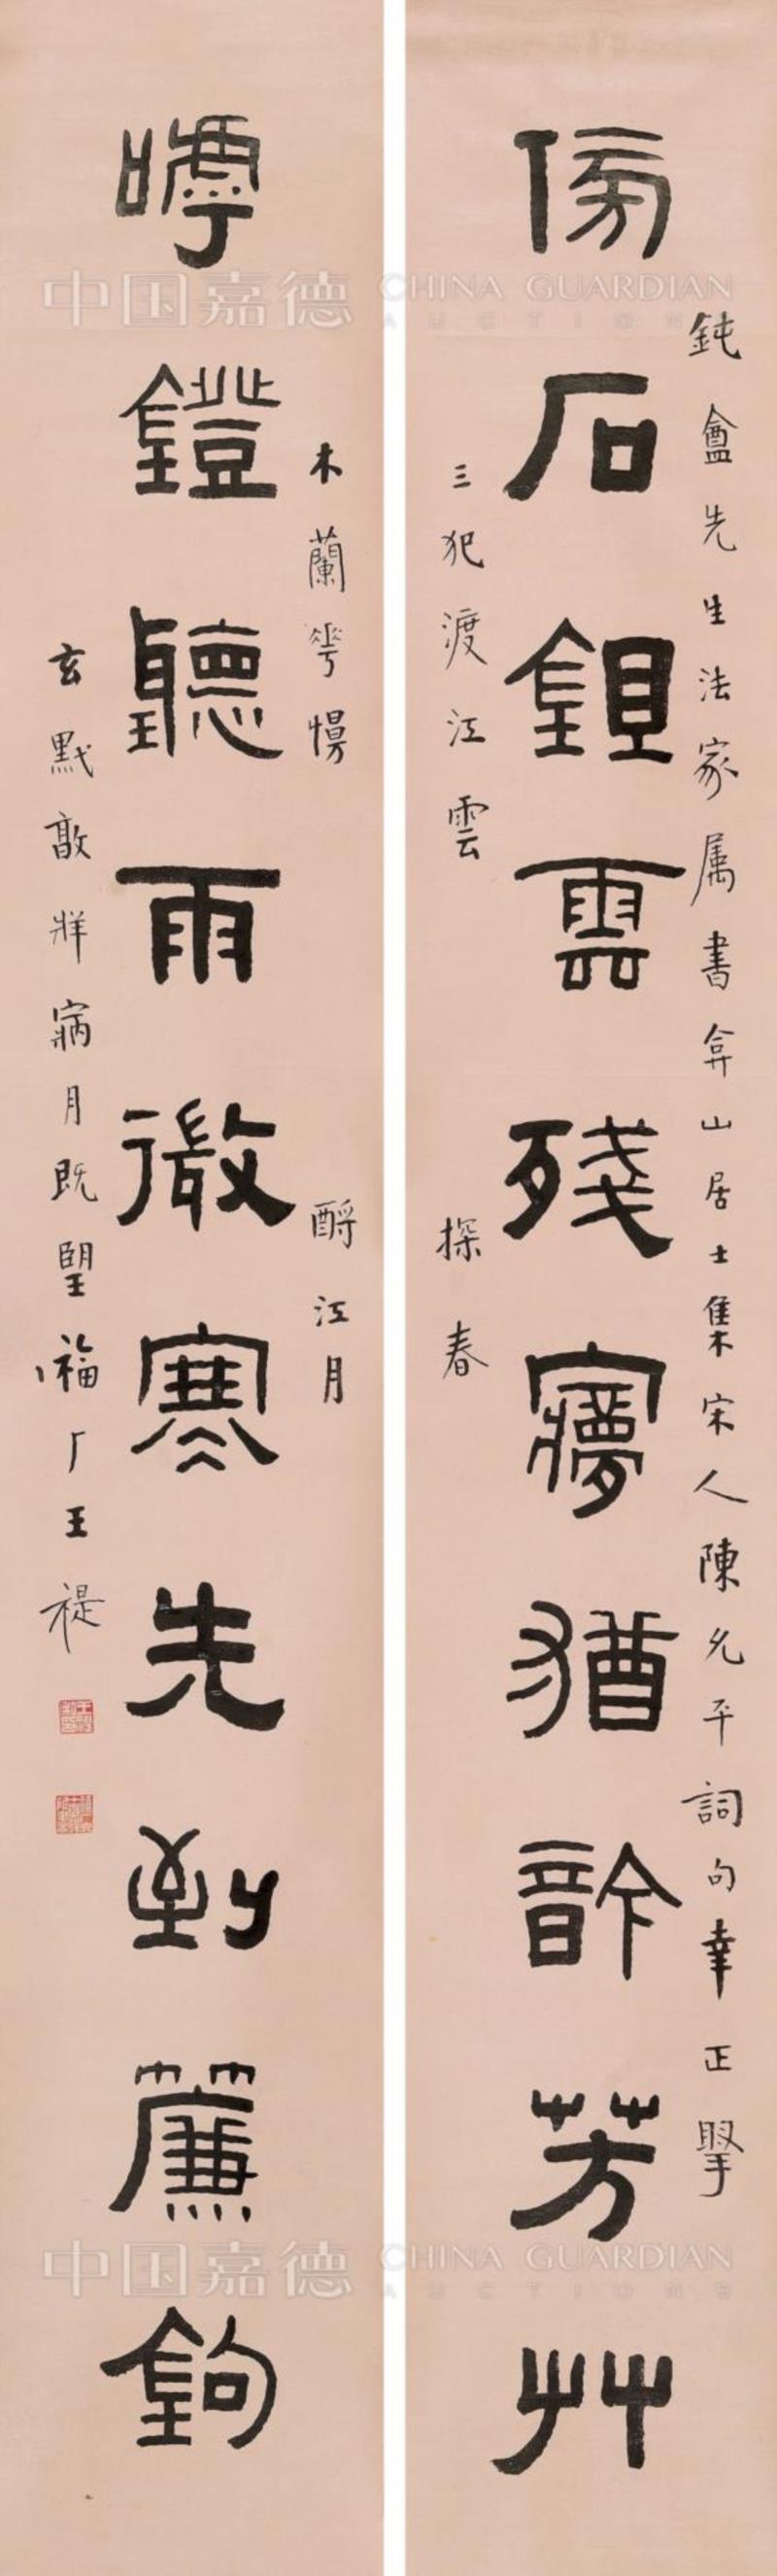 鈍盦先生法家属書弇山居士集宋人陳允平詞句幸正掔
傍石鉏雲殘㝱猶䪩芳艸
三犯渡江雲
探春
木蘭蕐慢
酹江月
嘑鐙聽雨微寒先到簾鉤
玄黓敦牂寎月既望福厂王禔
中国嘉德
CHINA GUARDIAN
AUCTIONS
中国嘉德
CHINA GUARDIAN
AUCTIONS